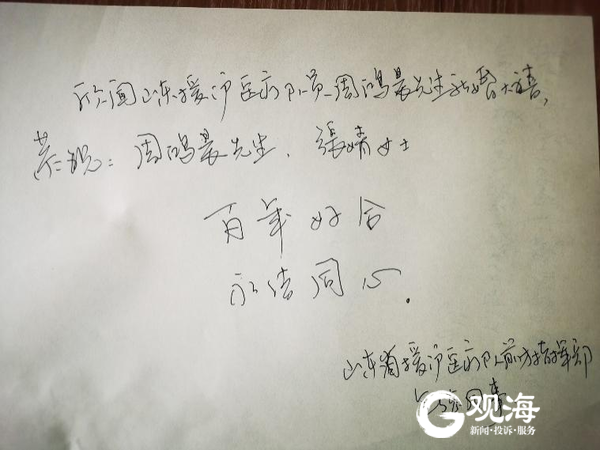 欣闻山东援沪医疗队员周鸣晨先生新婚大喜,
恭祝:周鸣晨先生、張婧女士
百年好合
永结同心.
山东省援沪医疗队前方指挥部
观海
新闻·投诉·服务